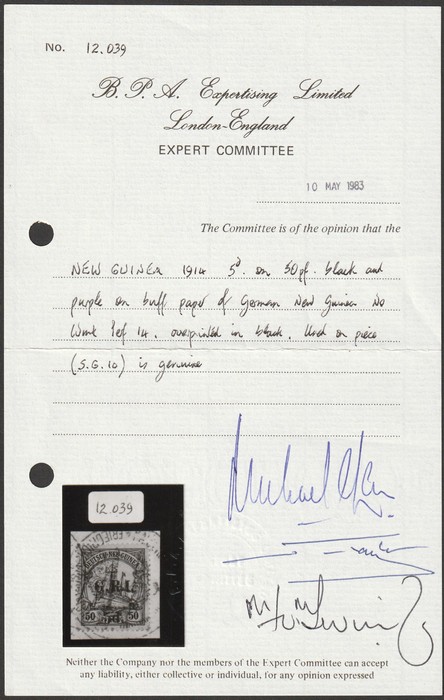 No. 12.039
B. P. A. Expertising Limited
London-England
EXPERT COMMITTEE
10 MAY 1983
The Committee is of the opinion that the
NEW GUINEA 1914 5d. on 50pf. black and
purple on buff paper of German New Guinea No
Wmk Perf 14. overprinted in black. Used on piece
(S.G.10) is genuine
Michael
12.039
DEUTSCH-NEU-GUINEA
G.R.I.
5d.
50 50
Neither the Company nor the members of the Expert Committee can accept
any liability, either collective or individual, for any opinion expressed